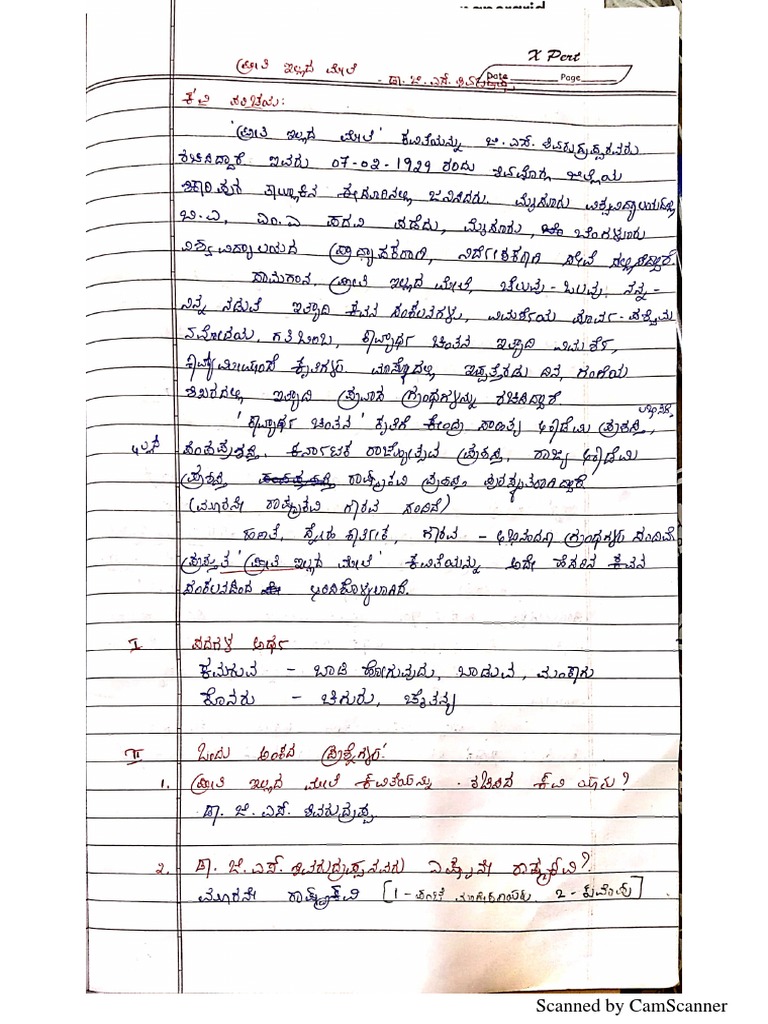 X Pert
ಪ್ರೀತಿ ಇಲ್ಲದ ಮೇಲೆ
- ಡಾ. ಜಿ. ಎಸ್. ಶಿವರುದ್ರಪ್ಪ Date Page
ಕವಿ ಪರಿಚಯ:
'ಪ್ರೀತಿ ಇಲ್ಲದ ಮೇಲೆ' ಕವಿತೆಯನ್ನು ಜಿ. ಎಸ್. ಶಿವರುದ್ರಪ್ಪನವರು
ರಚಿಸಿದ್ದಾರೆ. ಇವರು 07-02-1929 ರಂದು ಶಿವಮೊಗ್ಗ ಜಿಲ್ಲೆಯ
ಶಿಕಾರಿಪುರ ತಾಲ್ಲೂಕಿನ ಈಸೂರಿನಲ್ಲಿ ಜನಿಸಿದರು. ಮೈಸೂರು ವಿಶ್ವವಿದ್ಯಾಲಯದಲ್ಲಿ
ಬಿ.ಎ, ಎಂ.ಎ ಪದವಿ ಪಡೆದು, ಮೈಸೂರು, ಬೆಂಗಳೂರು
ವಿಶ್ವವಿದ್ಯಾಲಯದ ಪ್ರಾಧ್ಯಾಪಕರಾಗಿ, ನಿರ್ದೇಶಕರಾಗಿ ಸೇವೆ ಸಲ್ಲಿಸಿದ್ದಾರೆ.
ಸಾಮಗಾನ, ಪ್ರೀತಿ ಇಲ್ಲದ ಮೇಲೆ, ಚೆಲುವು-ಒಲವು, ನನ್ನ-
ನಿನ್ನ ನಡುವೆ ಇತ್ಯಾದಿ ಕವನ ಸಂಕಲನಗಳು, ವಿಮರ್ಶೆಯ ಪೂರ್ವ-ಪಶ್ಚಿಮ
ನವೋದಯ, ಗತಿಬಿಂಬ, ಕಾವ್ಯಾರ್ಥ ಚಿಂತನ ಇತ್ಯಾದಿ ವಿಮರ್ಶೆ,
ಕಾವ್ಯಮೀಮಾಂಸೆ ಕೃತಿಗಳು. ಮಾಸ್ಕೋದಲ್ಲಿ ಇಪ್ಪತ್ತೆರಡು ದಿನ, ಗಂಗೆಯ
ಶಿಖರದಲ್ಲಿ ಇತ್ಯಾದಿ ಪ್ರವಾಸ ಗ್ರಂಥಗಳನ್ನು ರಚಿಸಿದ್ದಾರೆ.
'ಕಾವ್ಯಾರ್ಥ ಚಿಂತನ' ಕೃತಿಗೆ ಕೇಂದ್ರ ಸಾಹಿತ್ಯ ಅಕಾಡೆಮಿ ಪ್ರಶಸ್ತಿ,
ಪಂಪಪ್ರಶಸ್ತಿ, ಕರ್ನಾಟಕ ರಾಜ್ಯೋತ್ಸವ ಪ್ರಶಸ್ತಿ, ರಾಜ್ಯ ಅಕಾಡೆಮಿ
ಪ್ರಶಸ್ತಿ ರಾಷ್ಟ್ರಕವಿ ಪ್ರಶಸ್ತಿ ಪುರಸ್ಕೃತರಾಗಿದ್ದಾರೆ
(ಮೂರನೇ ರಾಷ್ಟ್ರಕವಿ ಗೌರವ ಸಂದಿದೆ)
ಹಣತೆ, ಸ್ನೇಹ ಕಾರ್ತಿಕ, ಗೌರವ - ಅಭಿನಂದನಾ ಗ್ರಂಥಗಳು ಸಂದಿವೆ
ಪ್ರಸ್ತುತ 'ಪ್ರೀತಿ ಇಲ್ಲದ ಮೇಲೆ' ಕವಿತೆಯನ್ನು ಅದೇ ಹೆಸರಿನ ಕವನ
ಸಂಕಲನದಿಂದ ಆಯ್ದುಕೊಳ್ಳಲಾಗಿದೆ.
I ಪದಗಳ ಅರ್ಥ
ಕಮರುವ - ಬಾಡಿ ಹೋಗುವುದು, ಬಾಡುವ, ಮಂಕಾಗು
ಕೊನರು - ಚಿಗುರು, ಚೈತನ್ಯ
II ಒಂದು ಅಂಕದ ಪ್ರಶ್ನೆಗಳು:
1. ಪ್ರೀತಿ ಇಲ್ಲದ ಮೇಲೆ ಕವಿತೆಯನ್ನು ರಚಿಸಿದ ಕವಿ ಯಾರು?
ಡಾ. ಜಿ. ಎಸ್. ಶಿವರುದ್ರಪ್ಪ
2. ಡಾ. ಜಿ. ಎಸ್. ಶಿವರುದ್ರಪ್ಪನವರು ಎಷ್ಟನೇ ರಾಷ್ಟ್ರಕವಿ?
ಮೂರನೇ ರಾಷ್ಟ್ರಕವಿ [1 - ಮಂಜೇಶ್ವರ 2 - ಕುವೆಂಪು]
Scanned by CamScanner